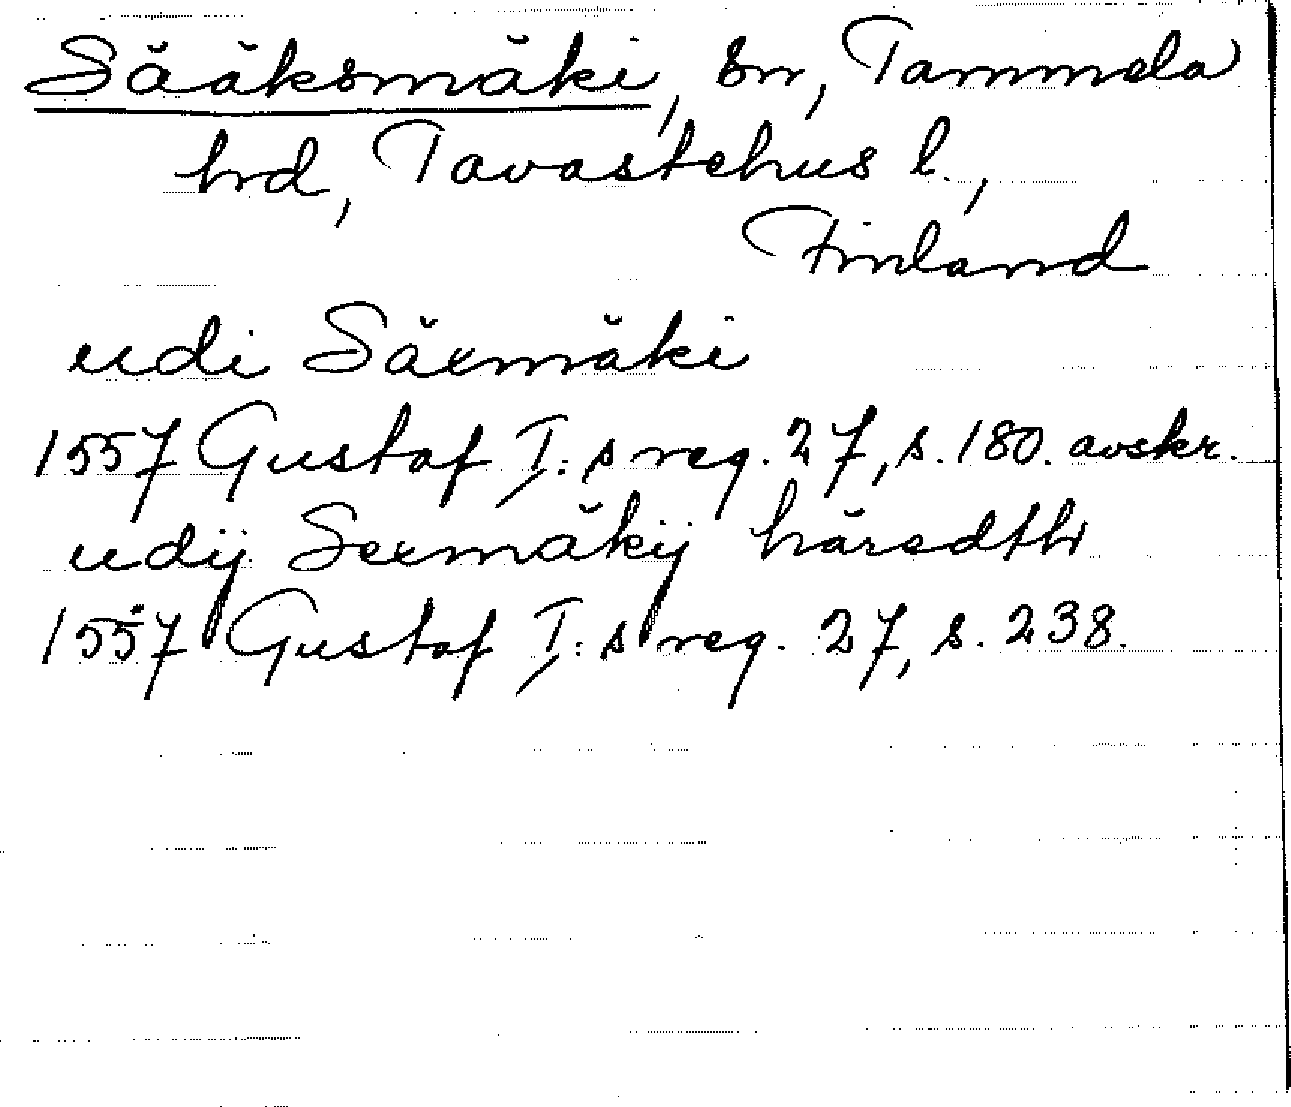 Sääksmäki, sn, Tammela
hrd, Tavastehus l.,
Finland
udi Säxmäki
1557 Gustaf I:s reg. 27, s. 180. avskr.
udij Sexmäkij häredth
1557 Gustaf I:s reg. 27, s. 238.